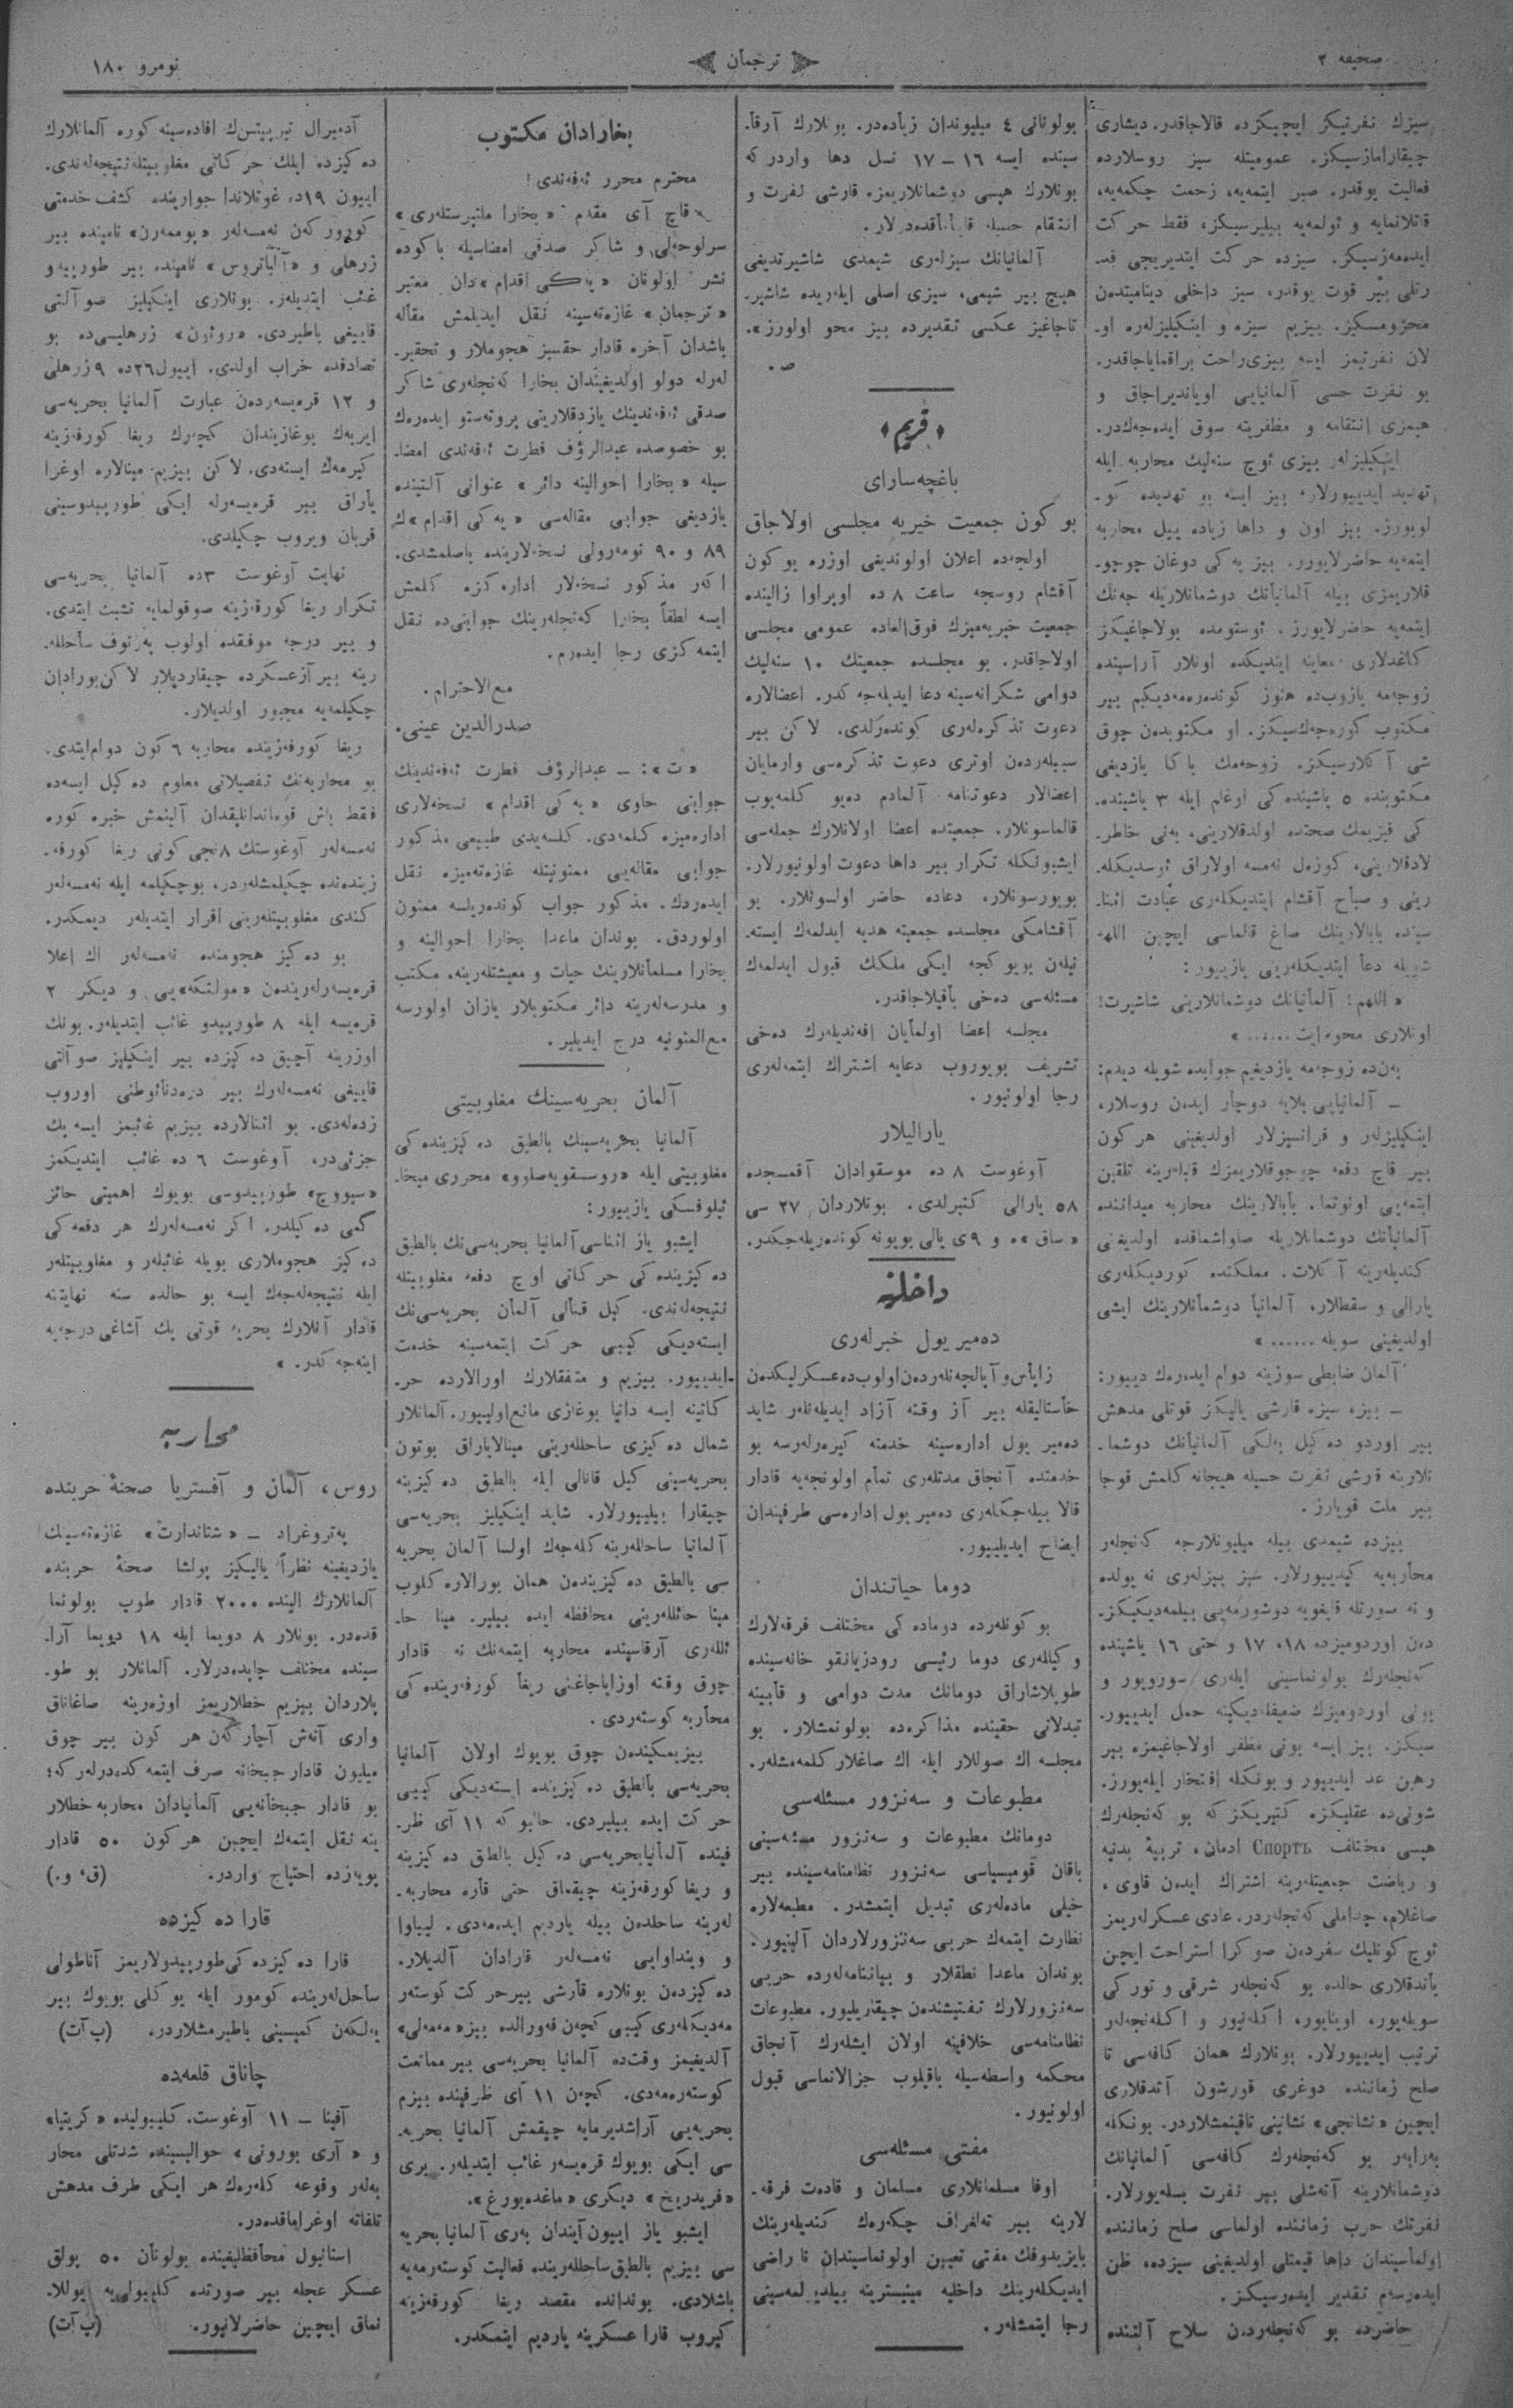 صحیفه ٢
ترجمان
نومرو ١٨٠
سیزك نفرتیكز ایچیكزده قالاجاقدر. دیشاری
چیقارامازسیكز. عمومیتله سیز روسلارده
فعالیت یوقدر. صبر ایتمه‌یه، زحمت چكمه‌یه،
قاتلانمایه و ئولمه‌یه بیلیرسیكز، فقط حركت
ایده‌مه‌زسیكز. سیزده حركت ایتدیریجی قد-
رتلی بیر قوت یوقدر، سیز داخلی دینامیتدن
محرومسكیز. بیزیم سیزه و اینكیلیزلره او-
لان نفرتیمز ایسه بیزی راحت براقمایاجاقدر.
بو نفرت حسی آلمانیایی اویاندیراجاق و
هپمزی انتقامه و مظفریته سوق ایده‌جه‌كدر.
اینكیلیزلەر بیزی ئوچ سنه‌لیك محاربه ایله
تهدید ایدییورلار، بیز ایسه بو تهدیده كو-
لویورز. بیز اون و داها زیاده ییل محاربه
ایتمه‌یه حاضرلایورز. بیز یه‌كی دوغان چوجو-
قلاریمزی بیله آلمانیانك دوشمانلاریله جه‌نك
ایتمه‌یه حاضرلایورز.
زوجه‌مه یازوب‌ده هنوز كونده‌ره‌مه‌دیكیم بیر
مكتوب كوره‌جه‌ك‌سیكز. او مكتوبدن چوق
شی آكلارسیكز. زوجه‌مك باكا یازدیغی
مكتوبنده ٥ یاشینده كی اوغلم ایله ٣ یاشینده-
كی قیزیمك صحتده اولدقلارینی،
رینی و صباح آقشام ایتدیكلەری عبادت اثنا-
سینده بابالارینك صاغ قالماسی ایچین اللهه
شویله دعا ایتدیكلەرینی یازییور:
« اللهم! آلمانیانك دوشمانلارینی شاشیرت!
اونلاری محوایت...... »
بەن‌ده زوجه‌مه یازدیغیم جوابده شویله دیدم:
ـ آلمانیایی بلایه دوچار ایدەن روسلار،
اینكیلیزلەر و فرانسیزلار اولدیغینی هركون
بیر قاچ دفعه چوجوقلاریمزك قلبلەرینه تلقین
ایتمه‌یی اونوتما. بابالارینك محاربه میداننده
آلمانیانك دوشمانلاریله صاواشماقده اولدیغنی
كندیلەرینه آكلات. مملكتده كوردیكلەری
یارالی و سقطلار، آلمانیا دوشمانلارینك ایشی
اولدیغینی سویله ...... »
آلمان ضابطی سوزینه دوام ایدەرەك دییور:
ـ بیز، سیزه قارشی یالیكز قوتلی مدهش
بیر اوردو ده‌كیل به‌لكی آلمانیانك دوشما-
نلارینه قارشی نفرت حسیله هیجانه كلمش قوجا
بیر ملت قویارز.
بیزده شیمدی بیله میلیونلارجه كه‌نجلەر
محاربه‌یه كیدییورلار. سیز بیزلەری نه یولده
و نه صورتله قایغویه دوشورمه‌یی بیلمه‌دیكیكز-
دەن اوردومیزده ١٨، ١٧ و حتی ١٦ یاشینده
كه‌نجلەرك بولونماسینی ایلەری سورویور و
بونی اوردومیزك ضعیفلەدیكینه حمل ایدییور-
سیكز. بیز ایسه بونی مظفر اولاجاغیمزه بیر
رهن عد ایدییور و بونكله افتخار ایلەیورز.
شونی‌ده عقلیكزه كتیریكزكه بو كه‌نجلەرك
هپسی مختلف Спортъ ادمان، تربیۀ بدنیه
و ریاضت جمعیتلەرینه اشتراك ایدەن قاوی،
صاغلام، كه‌نجلەردر. عادی عسكرلەریمز
ئوچ كونلیك سفردەن صوكرا استراحت ایچین
یاتدقلاری حالده بو كه‌نجلەر شرقی و توركی
سویلەیور، اوینایور، اكلەنیور و اكلەنجەلەر
ترتیب ایدییورلار. بونلارك همان كافه‌سی تا
صلح زماننده دوغری قورشون آتدقلاری
ایچین «نشانجی» نشانینی تاقینمشلاردر. بونكله
بەرابەر بو كه‌نجلەرك كافه‌سی آلمانیانك
دوشمانلارینه آتەشلی بیر نفرت بسلەیورلار.
نفرتك حرب زماننده اولماسی صلح زماننده
اولماسیندان داها قیمتلی اولدیغینی سیزده، ظن
ایدەرسەم تقدیر ایدەرسیكز.
حاضرده بو كه‌نجلەردن سلاح آلتنده
بولونانی ٤ میلیوندان زیاده‌در. بونلارك آرقا-
سینده ایسه ١٦–١٧ نسل دها واردركه
بونلارك هپسی دوشمانلاریمزه قارشی نفرت و
انتقام حسیله
آلمانیانك سیزلەری شیمدی شاشیرتدیغی
هیچ بیر شیمی، سیزی اصلی ایلەریده شاشیر-
تاجاغیز عكسی تقدیرده بیز محو اولورز».
ص.
﴿قریم﴾
باغچه‌سارای
بو كون جمعیت خیریه مجلسی اولاجاق
اولجه‌ده اعلان اولوندیغی اوزره بوكون
آقشام روسجه ساعت ٨ ده اوپراوا زالینده
جمعیت خیریه‌میزك فوق‌العاده عمومی مجلسی
اولاجاقدر. بو مجلسده جمعیتك ١٠ سنه‌لیك
دوامی شكرانه‌سینه دعا ایدیله‌جه‌كدر. اعضالاره
دعوت تذكره‌لەری كوندەرلدی. لاكن بیر
سببلەردەن اوتری دعوت تذكره‌سی وارمایان
اعضالار دعوتنامه آلمادم دەیو كلمه‌یوب
قالماسونلار. جمعیتده اعضا اولانلارك جمله‌سی
ایشبونكله تكرار بیر داها دعوت اولونیورلار.
بویورسونلار، دعاده حاضر اولسونلار. بو
آقشامكی مجلسده جمعیته هدیه ایدلمه‌ك ایستە-
نیلەن بویوكجه ایكی ملكك قبول ایدلمه‌ك
مسئله‌سی دەخی باقیلاجاقدر.
مجلسه اعضا اولمایان افندیلەرك دەخی
تشریف بویوروب دعایه اشتراك ایتمه‌لەری
رجا اولونیور.
یارالیلار
آوغوست ٨ ده موسقوادان آقمسجده
٥٨ یارالی كتیرلدی. بونلاردان ٢٧ سی
«ساق»ه و ٩ی یالی بویونه كوندەریلەجكدر.
داخلیه
دەمیر یول خبرلەری
زاپاس و آپالچه‌نلەردەن اولوب‌ده عسكرلیكدەن
خاستالیقله بیر آز وقته آزاد ایدیلەنلەر شاید
دەمیر یول اداره‌سینه خدمته كیرەرلەرسه بو
خدمتده آنجاق مدتلەری تمام اولونجه‌یه قادار
قالا بیلەجكلەری دەمیر یول اداره‌سی طرفیندان
ایضاح ایدیلییور.
دوما حیاتندان
بو كونلەرده دوماده كی مختلف فرقه‌لارك
وكیللەری دوما رئیسی رودزیانقو خانه‌سینده
طوبلاشاراق دومانك مدت دوامی و قابینه
تبدلاتی حقینده مذاكره‌ده بولونمشلار. بو
مجلسه اك صوللار ایله اك صاغلار كلمه‌مشلەر.
مطبوعات و سه‌نزور مسئله‌سی
دومانك مطبوعات و سه‌نزور مسئله‌سینی
باقان قومیسیاسی سه‌نزور نظامنامه‌سینده بیر
خیلی ماده‌لەری تبدیل ایتمشدر. مطبعه‌لاره
نظارت ایتمه‌ك حربی سه‌نزورلاردان آلنیور.
بوندان ماعدا نطقلار و بیاننامه‌لەرده حربی
سه‌نزورلارك تفتیشندەن چیقاریلیور. مطبوعات
نظامنامه‌سی خلافینه اولان ایشلەرك آنجاق
محكمه واسطه‌سیله باقیلوب جزالانماسی قبول
اولونیور.
مفتی مسئله‌سی
اوفا مسلمانلاری مسلمان و قادەت فرقه-
لارینه بیر تەلغراف چكەرەك كندیلەرینك
بایزیدوفك مفتی تعیین اولونماسیندان نا راضی
ایدیكلەرینك داخلیه مینیستیرینه بیلدیرلمه‌سینی
رجا ایتمشلەر.
بخارادان مكتوب
محترم محرر ئەفەندی!
قاچ آی مقدم «بخارا ملتپرستلەری»
سرلوحه‌لی و شاكر صدقی امضاسیله باكوده
نشر اولونان «یه‌كی اقدام»دان معتبر
«ترجمان» غازەته‌سینه نقل ایدیلمش مقاله
باشدان آخره قادار حقسیز هجوملار و تحقیر-
لەرله دولو اولدیغیندان بخارا كه‌نجلەری شاكر
صدقی ئەفەندینك یازدقلارینی پروتەستو ایدەرەك
بو خصوصده عبدالرؤف فطرت ئەفەندی امضا-
سیله «بخارا احوالینه دائر» عنوانی آلتینده
یازدیغی جوابی مقاله‌سی «یه‌كی اقدام»ك
٨٩ و ٩٠ نومەرولی نسخەلارینده باصلمشدی.
اكەر مذكور نسخەلار اداره‌كزه كلمش
ایسه لطفاً بخارا كه‌نجلەرینك جوابنی‌ده نقل
ایتمه‌كزی رجا ایدەرم.
مع‌الاحترام.
صدرالدین عینی.
«ت»: ـ عبدالرؤف فطرت ئەفەندینك
جوابی حاوی «یه‌كی اقدام» نسخه‌لاری
اداره‌میزه كلمه‌دی. كلسه‌یدی طبیعی مذكور
جوابی مقاله‌یی ممنونیتله غازەته‌میزه نقل
ایدەردك. مذكور جواب كوندەریلسه ممنون
اولوردق. بوندان ماعدا بخارا احوالینه و
بخارا مسلمانلارینك حیات و معیشتلەرینه، مكتب
و مدرسه‌لەرینه دائر مكتوبلار یازان اولورسه
مع‌الممنونیه درج ایدیلیر.
آلمان بحریه‌سینك مغلوبیتی
آلمانیا بحریه‌سینك بالطیق ده‌كیزینده كی
مغلوبیتی ایله «روسسقویه‌صلوو» محرری میخا-
ئیلوفسكی یازییور:
ایشبو یاز اثناسی آلمانیا بحریه‌سی‌نك بالطیق
ده‌كیزینده كی حركاتی اوچ دفعه مغلوبیتله
نتیجه‌لەندی. كیل قنالی آلمان بحریه‌سی‌نك
ایستەدیكی كیبی حركت ایتمه‌سینه خدمت
ایدییور. بیزیم و متفقلارك اورالارده حر-
كاتینه ایسه دانیا بوغازی مانع اولییور. آلمانلار
شمال ده‌كیزی ساحللەرینی مینالایاراق بوتون
بحریه‌سینی كیل قانالی ایله بالطیق ده‌كیزینه
چیقارا بیلییورلار. شاید اینكیلیز بحریه‌سی
آلمانیا ساحللەرینه كله‌جه‌ك اولسا آلمان بحریه
سی بالطیق ده‌كیزیندەن همان بورالاره كلوب
مینا حائللەرینی محافظه ایده بیلیر. مینا حا-
ئللەری آرقاسینده محاربه ایتمه‌نك نه قادار
چوق وقته اوزایاجاغنی ریغا كورفەزینده كی
محاربه كوستەردی.
بیزیمكیندەن چوق بویوك اولان آلمانیا
بحریه‌سی بالطیق ده‌كیزینده ایستەدیكی كیبی
حركت ایده بیلیردی. حالبوكه ١١ آی ظر-
فینده آلمانیا بحریه‌سی ده‌كیل بالطیق ده‌كیزینه
و ریغا كورفەزینه چیقماق حتی قاره محاربه-
لەرینه ساحلدەن بیله یاردیم ایدەمەدی. لیباوا
و وینداوایی نەمسەلەر قارادان آلدیلار.
ده‌كیزدەن بونلاره قارشی بیر حركت كوستەر
مەدیكلەری كیبی كچەن فەورالده بیز «مەمەلی»
آلدیغیمز وقت‌ده آلمانیا بحریه‌سی بیر ممانعت
كوستەرەمەدی. كچەن ١١ آی ظرفینده بیزم
بحریه‌یی آراشدیرمایه چیقمش آلمانیا بحریه-
سی ایكی بویوك قرەیسەر غائب ایتدیلەر. بری
«فریدریخ» دیكری «ماغدەبورغ».
ایشبو یاز اییون آیندان بەری آلمانیا بحریه
سی بیزیم بالطیق ساحللەرینده فعالیت كوستەرمه‌یه
باشلادی. بوندانده مقصد ریغا كورفەزینه
كیروب قارا عسكرینه یاردیم ایتمكدر.
آدمیرال تیرپیتس‌ك افاده‌سینه كوره آلمانلارك
ده‌كیزده ایلك حركاتی مغلوبیتله نتیجه‌لەندی.
اییون ١٩ده، غوتلاندا جوارینده كشف خدمتی
كوروركەن نەمسەلەر «پوممەرن» نامینده بیر
زرهلی و «آلباتروس» نامینده بیر طورپیدو
غائب ایتدیلەر. بونلاری اینكیلیز صوآلتی
قاییغی باطیردی. «روئون» زرهلیسی‌ده بو
تصادفده خراب اولدی. اییول ٢٦ده ٩ زرهلی
و ١٢ قرەیسەردەن عبارت آلمانیا بحریه‌سی
ایربەك بوغازیندان كچەرك ریغا كورفەزینه
كیرمه‌ك ایستەدی. لاكن بیزیم مینالاره اوغرا
یاراق بیر قرەیسەرله ایكی طورپیدوسینی
قربان ویروب چكیلدی.
نهایت آوغوست ٣ده آلمانیا بحریه‌سی
تكرار ریغا كورفەزینه صوقولمایه تشبث ایتدی.
و بیر درجه موفقده اولوب پەرنوف ساحللە-
رینه بیر آز عسكرده چیقاردیلار لاكن بورادان
چكیلمه‌یه مجبور اولدیلار.
ریغا كورفەزینده محاربه ٦ كون دوام‌ایتدی.
بو محاربه‌نك تفصیلاتی معلوم ده‌كیل ایسه‌ده
فقط باش قوماندانلیقدان آلینمش خبره كوره
نەمسەلەر آوغوستك ٨نجی كونی ریغا كورفە-
زیندەنده چكیلمشلەردر، بوچكیلمه ایله نەمسەلەر
كندی مغلوبیتلەرینی اقرار ایتدیلەر دیمكدر.
بو ده‌كیز هجومنده نەمسەلەر اك اعلا
قرەیسەرلەریندەن «مولتكه»یی و دیكر ٢
قرەیسه ایله ٨ طورپیدو غائب ایتدیلەر. بونك
اوزرینه آچیق ده‌كیزده بیر اینكیلیز صوآلتی
قاییغی نەمسەلەرك بیر درەدنائوطنی اوروب
زدەلەدی. بو اثنالارده بیزیم غائبمز ایسه پك
جزئی‌در، آوغوست ٦ ده غائب ایتدیكمز
«سیووچ» طورپیدوسی بویوك اهمیتی حائز
گمی ده‌كیلدر. اكر نەمسەلەرك هر دفعه‌كی
ده‌كیز هجوملاری بویله غائبلەر و مغلوبیتلەر
ایله نتیجه‌لەجه‌ك ایسه بو حالده سنه نهایتنه
قادار آنلارك بحریه قوتی پك آشاغی درجه‌یه
اینه‌جه‌كدر. »
محاربه
روس، آلمان و آفستریا صحنۀ حربنده
پەتروغراد ـ «شتاندارت» غازەته‌سینك
یازدیغینه نظراً یالیكز پولشا صحنۀ حربنده
آلمانلارك الینده ٢٠٠٠ قادار طوپ بولونما
قده‌در. بونلار ٨ دویما ایله ١٨ دویما آرا-
سینده مختلف چاپده‌درلار. آلمانلار بو طو-
پلاردان بیزیم خطلاریمز اوزەرینه صاغاناق
واری آتەش آچاركەن هر كون بیر چوق
میلیون قادار جبخانه صرف ایتمه‌كده‌درلەركه؛
بو قادار جبخانه‌یی آلمانیادان محاربه خطلار
ینه نقل ایتمه‌ك ایچین هركون ٥٠ قادار
پویەزده احتیاج واردر. (ق. و.)
قارا ده‌كیزده
قارا ده‌كیزده كی طورپیدولاریمز آناطولی
ساحل‌لەرینده كومور ایله یوكلی بویوك بیر
یەلكەن كمیسینی باطیرمشلاردر. (پ آت)
چاناق قلعه‌ده
آفینا ـ ١١ آوغوست. كلیبولیده «كریتیا»
و «آری بورونی» حوالیسینده شدتلی محار
بەلەر وقوعه كلەرەك هر ایكی طرف مدهش
تلفاته اوغراماقده‌در.
استانبول محافظلیغینده بولونان ٥٠ پولق
عسكر عجله بیر صورتده كلیبولی‌یه یوللا-
نماق ایچین حاضرلانیور. (پ آت)